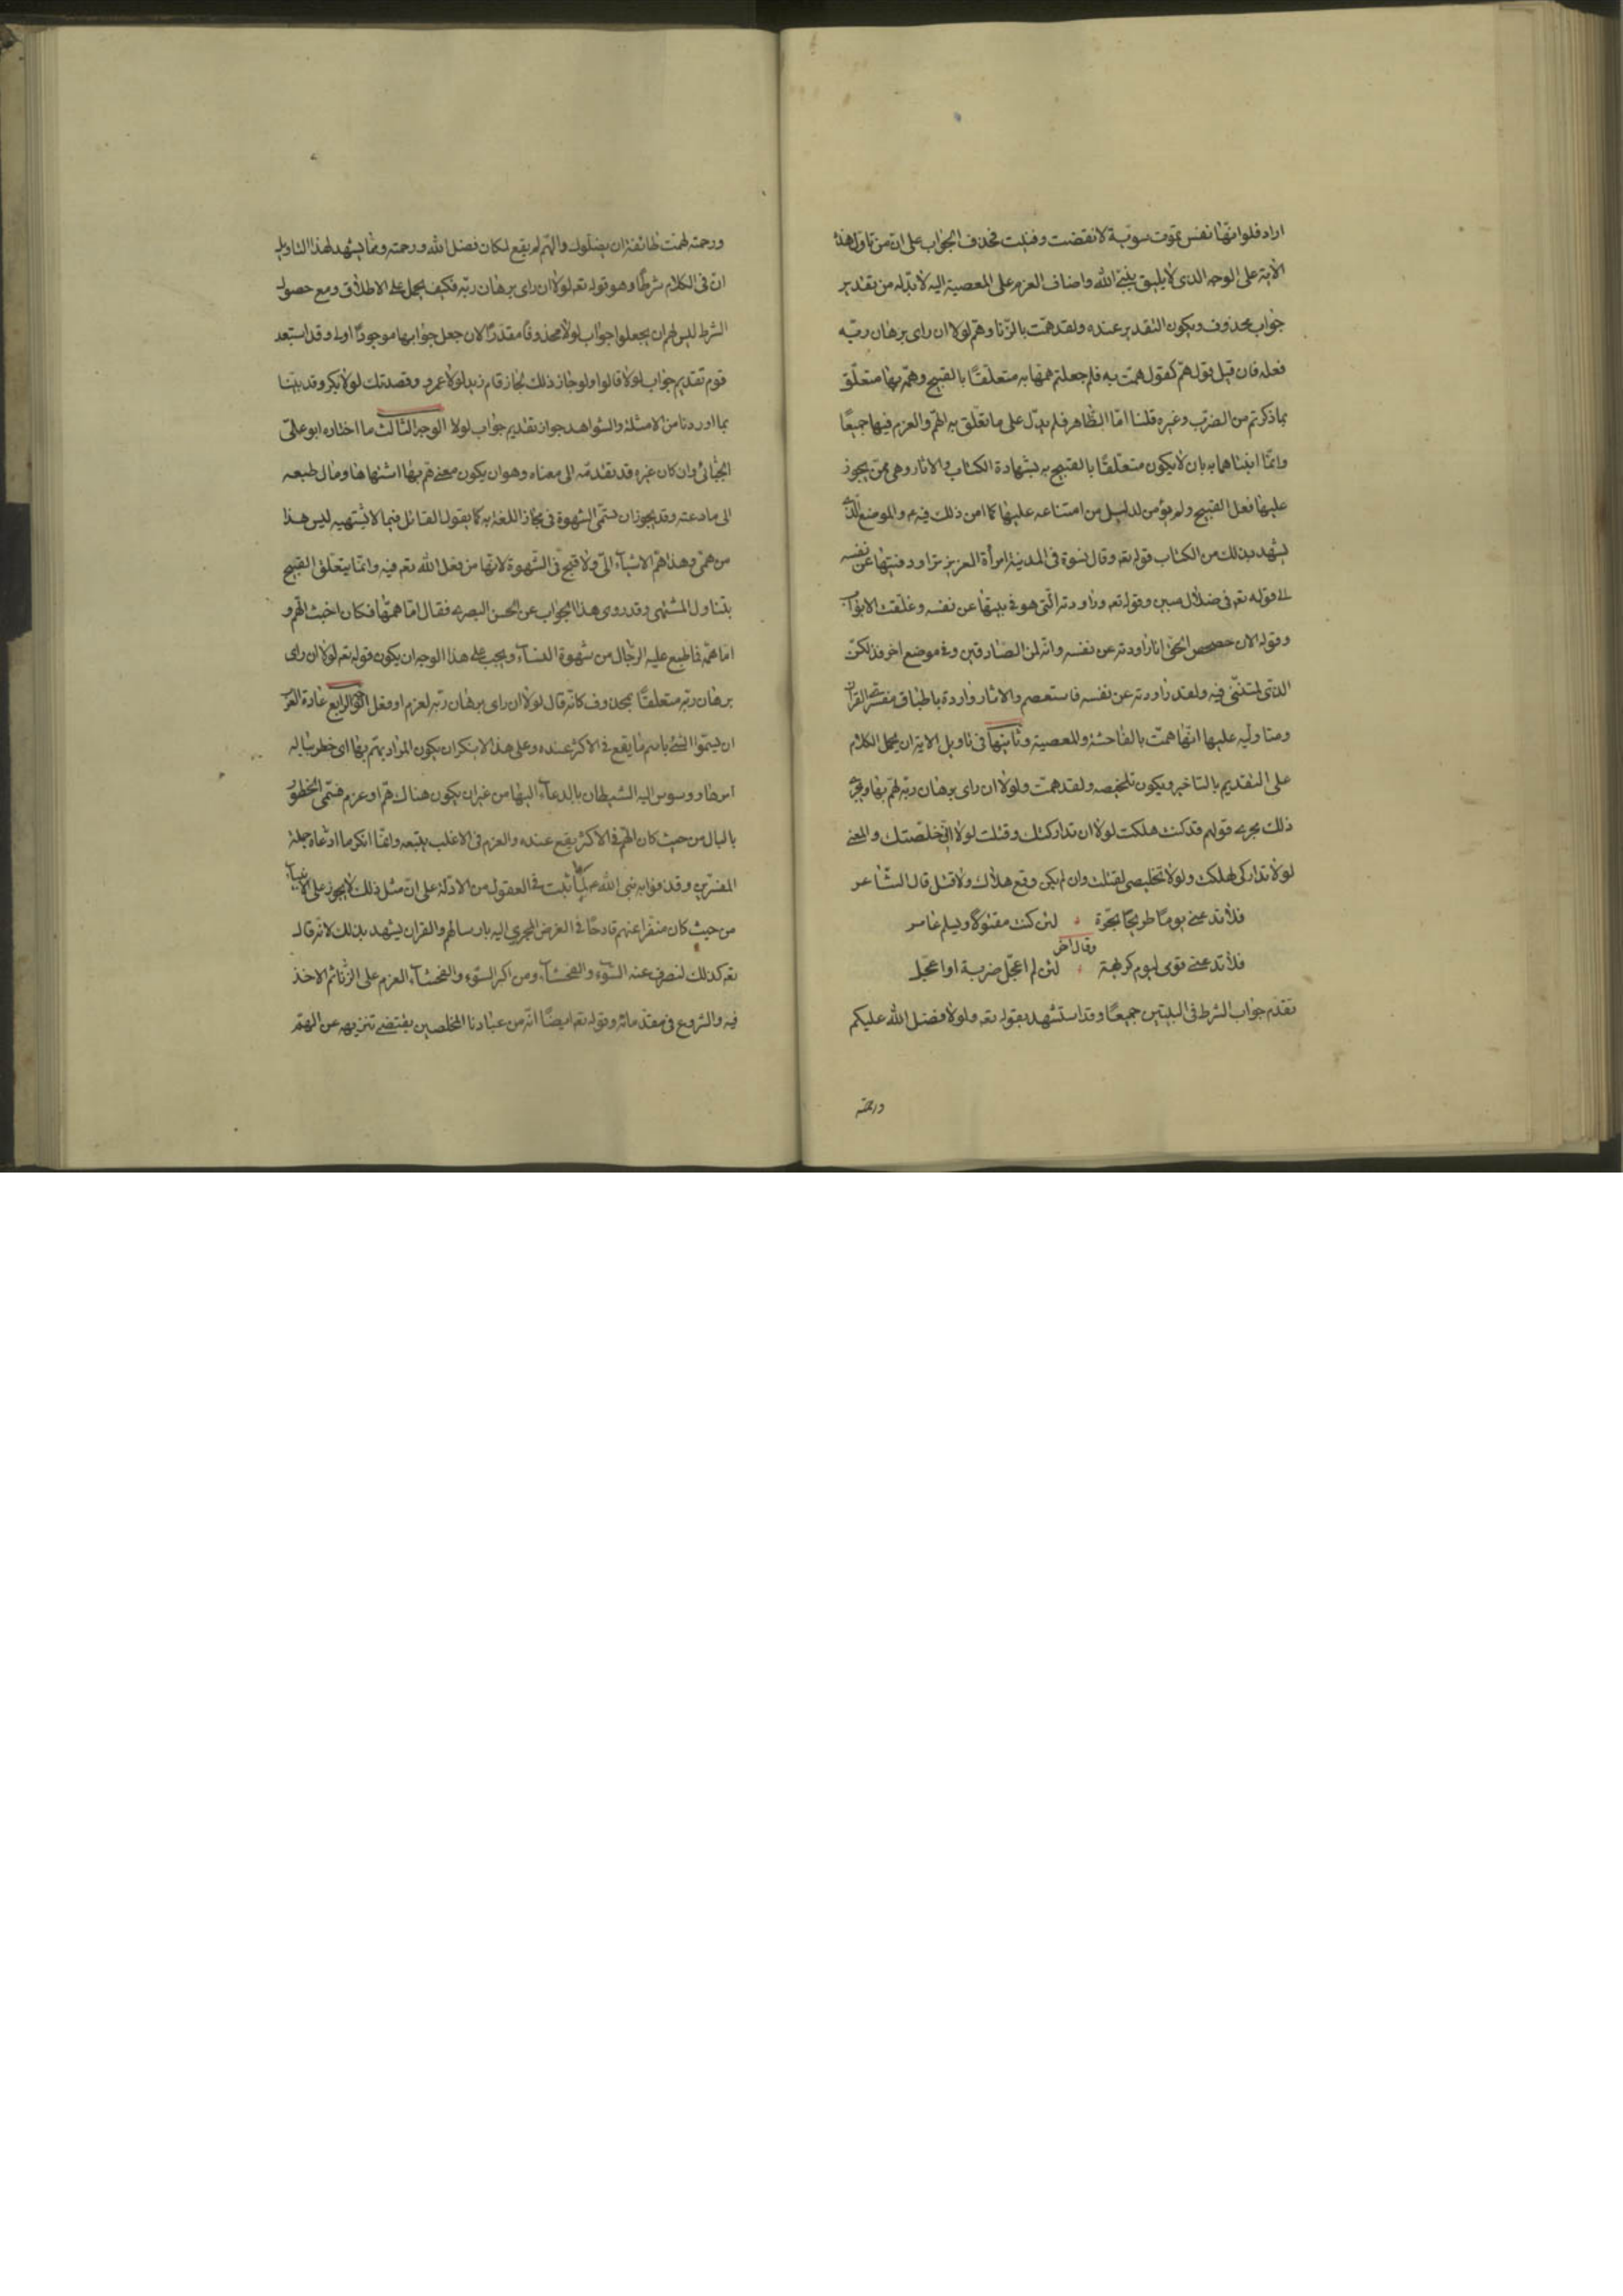 اراد فلو انها نفس تموت سوية لانقضت وفنيت فحذف الجواب على ان من تاول هذه
الاية على الوجه الذى لا يليق بنبى الله واضاف العزم على المعصية اليه لا بد له من تقدير
جواب محذوف ويكون التقدير عنده ولقد همت بالزنا وهم لولا ان راى برهان ربه
فعله فان قيل قوله هم كقوله همت به فلم جعلتم همها به متعلقا بالقبيح وهمه بها متعلق
بما ذكرتم من الضرب وغيره قلنا اما الظاهر فلم يدل على ما تعلق به الهم والعزم فيها جميعا
وانما اثبتنا همها به بان لا يكون متعلقا بالقبيح به بشهادة الكتاب والاثار وهى ممن يجوز
عليها فعل القبيح ولم يؤمن لدليل من امتناعه عليها كما امن ذلك فيه ع والموضع الذى
يشهد بذلك من الكتاب قوله تعه وقال نسوة فى المدينة امرأة العزيز تراود فتيها عن نفسه
الى قوله تعه فى ضلال مبين وقوله تعه وراودته التى هو فى بيتها عن نفسه وغلقت الابواب
وقوله الان حصحص الحق انا راودته عن نفسه وانه لمن الصادقين وفى موضع اخر فذلكن
الذى لمتننى فيه ولقد راودته عن نفسه فاستعصم والاثار واردة باطباق مفسرى القران
ومتاوليه عليها انها همت بالفاحشة والمعصية وثانيها فى تاويل الاية ان يحمل الكلام
على التقديم بالتاخير ويكون تلخيصه ولقد همت ولولا ان راى برهان ربه لهم بها ويجرى
ذلك مجرى قولهم قد كنت هلكت لولا ان تداركتك وقتلت لولا انى خلصتك والمعنى
لولا تداركى لهلكت ولولا تخليصى لقتلت وان لم يكن وقع هلاك ولا قتل قال الشاعر
فلا تدعنى يوما طريحا بحرة لئن كنت مقتولا ويسلم عامر
وقال اخر
فلا تدعنى قومى ليوم كريهة لئن لم اعجل ضربة او اعجل
تقدم جواب الشرط فى البيتين جميعا وقد استشهد بقوله تعه ولولا فضل الله عليكم
ورحمته
ورحمته لهمت طائفة ان يضلوك والهم لم يقع لمكان فضل الله ورحمته ومما يشهد لهذا التاويل
ان فى الكلام شرطا وهو قوله تعه لولا ان راى برهان ربه فكيف يحمل على الاطلاق ومع حصول
الشرط ليس لهم ان يجعلوا جواب لولا محذوفا مقدرا لان جعل جوابها موجودا اولى وقد استبعد
قوم تقديم جواب لولا قالوا ولو جاز ذلك لجاز قام زيد لولا عمرو وقصدتك لولا بكر وقد بينا
بما اوردنا من الامثلة والشواهد جواز تقديم جواب لولا الوجه الثالث ما اختاره ابو على
الجبائى وان كان غيره قد تقدمه الى معناه وهو ان يكون معنى هم بها اشتهاها ومال طبعه
الى ما دعته وقد يجوز ان تسمى الشهوة فى مجاز اللغة به كما يقول القائل فيما لا يشتهيه ليس هذا
من همى وهذا هم الاشياء الى ولا قبح فى الشهوة لانها من فعل الله تعه فيه وانما يتعلق القبيح
بتناول المشتهى وقد روى هذا الجواب عن الحسن البصرى فقال اما همها فكان اخبث الهم و
اما همه فما طبع عليه الرجال من شهوة النساء ويجب على هذا الوجه ان يكون قوله تعه لولا ان راى
برهان ربه متعلقا بمحذوف كانه قال لولا ان راى برهان ربه لعزم او فعل الوجه الرابع عادة العرب
ان يسموا الشئ باسم ما يقع فى الاكثر عنده وعلى هذا لا ينكر ان يكون المراد بهم بها اى خطر بباله
امرها ووسوس اليه الشيطان بالدعاء اليها من غير ان يكون هناك هم او عزم فسمى الخطور
بالبال من حيث كان الهم فى الاكثر يقع عنده والعزم فى الاغلب يتبعه وانما انكر ما ادعاه جهلة
المفسرين وقذفوا به نبى الله ع لما ثبت فى العقول من الادلة على ان مثل ذلك لا يجوز على الانبياء
من حيث كان منفرا عنهم قادحا فى الغرض المجرى اليه بارسالهم والقران يشهد بذلك لانه قال
تعه كذلك لنصرف عنه السوء والفحشاء ومن اكبر السوء والفحشاء العزم على الزنا ثم الاخذ
فيه والشروع فى مقدماته وقوله تعه ايضا انه من عبادنا المخلصين يقتضى تنزيهه عن الهم